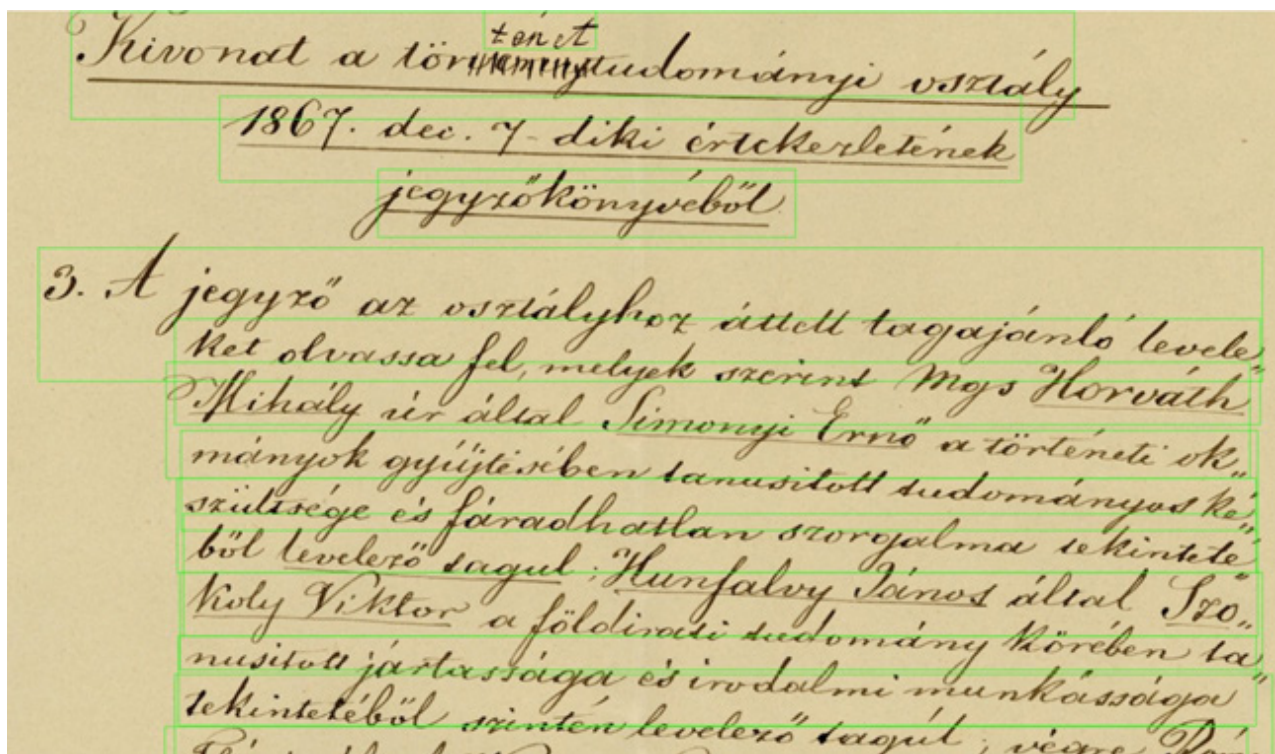 ténet
Kivonat a történettudományi osztály
1867. dec. 7-diki értekezletének
jegyzőkönyvéből
3. A jegyző az osztályhoz áttett tagajánló levele„
ket olvassa fel, melyek szerint Mgs Horváth
Mihály úr által Simonyi Ernő a történeti ok„
mányok gyűjtésében tanusitott tudományos ké„
szültsége és fáradhatlan szorgalma tekinteté„
ből levelező tagul; Hunfalvy János által Szo„
koly Viktor a földirati tudomány körében ta„
nusitott jártassága és irodalmi munkássága
tekintetéből szintén levelező tagúl; végre